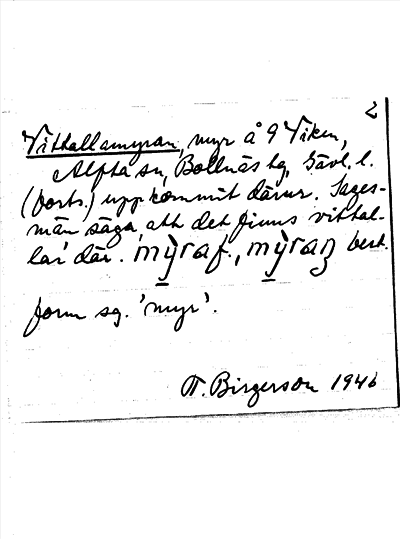 2
Vittallamyran, myr å 9 Viken,
Alfta sn, Bollnäs tg, Gävl. l.
(forts.) uppkommit därur. Sages-
män säga, att det finns vittal-
lar där. mỳraf., mỳraꞑ best.
form sg. 'myr'.
T. Birgerson 1946